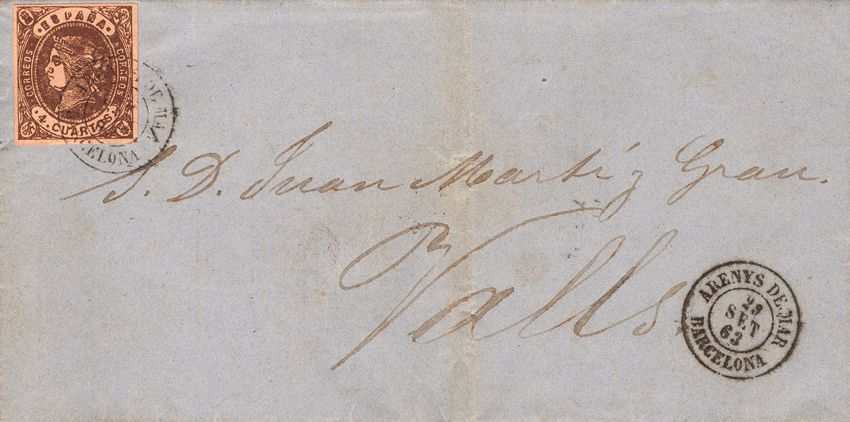 ESPAÑA
CORREOS
CORREOS
4 CUARTOS
S. D. Juan Martí y Grau.
Valls
ARENYS DE MAR
23
SET
63
BARCELONA